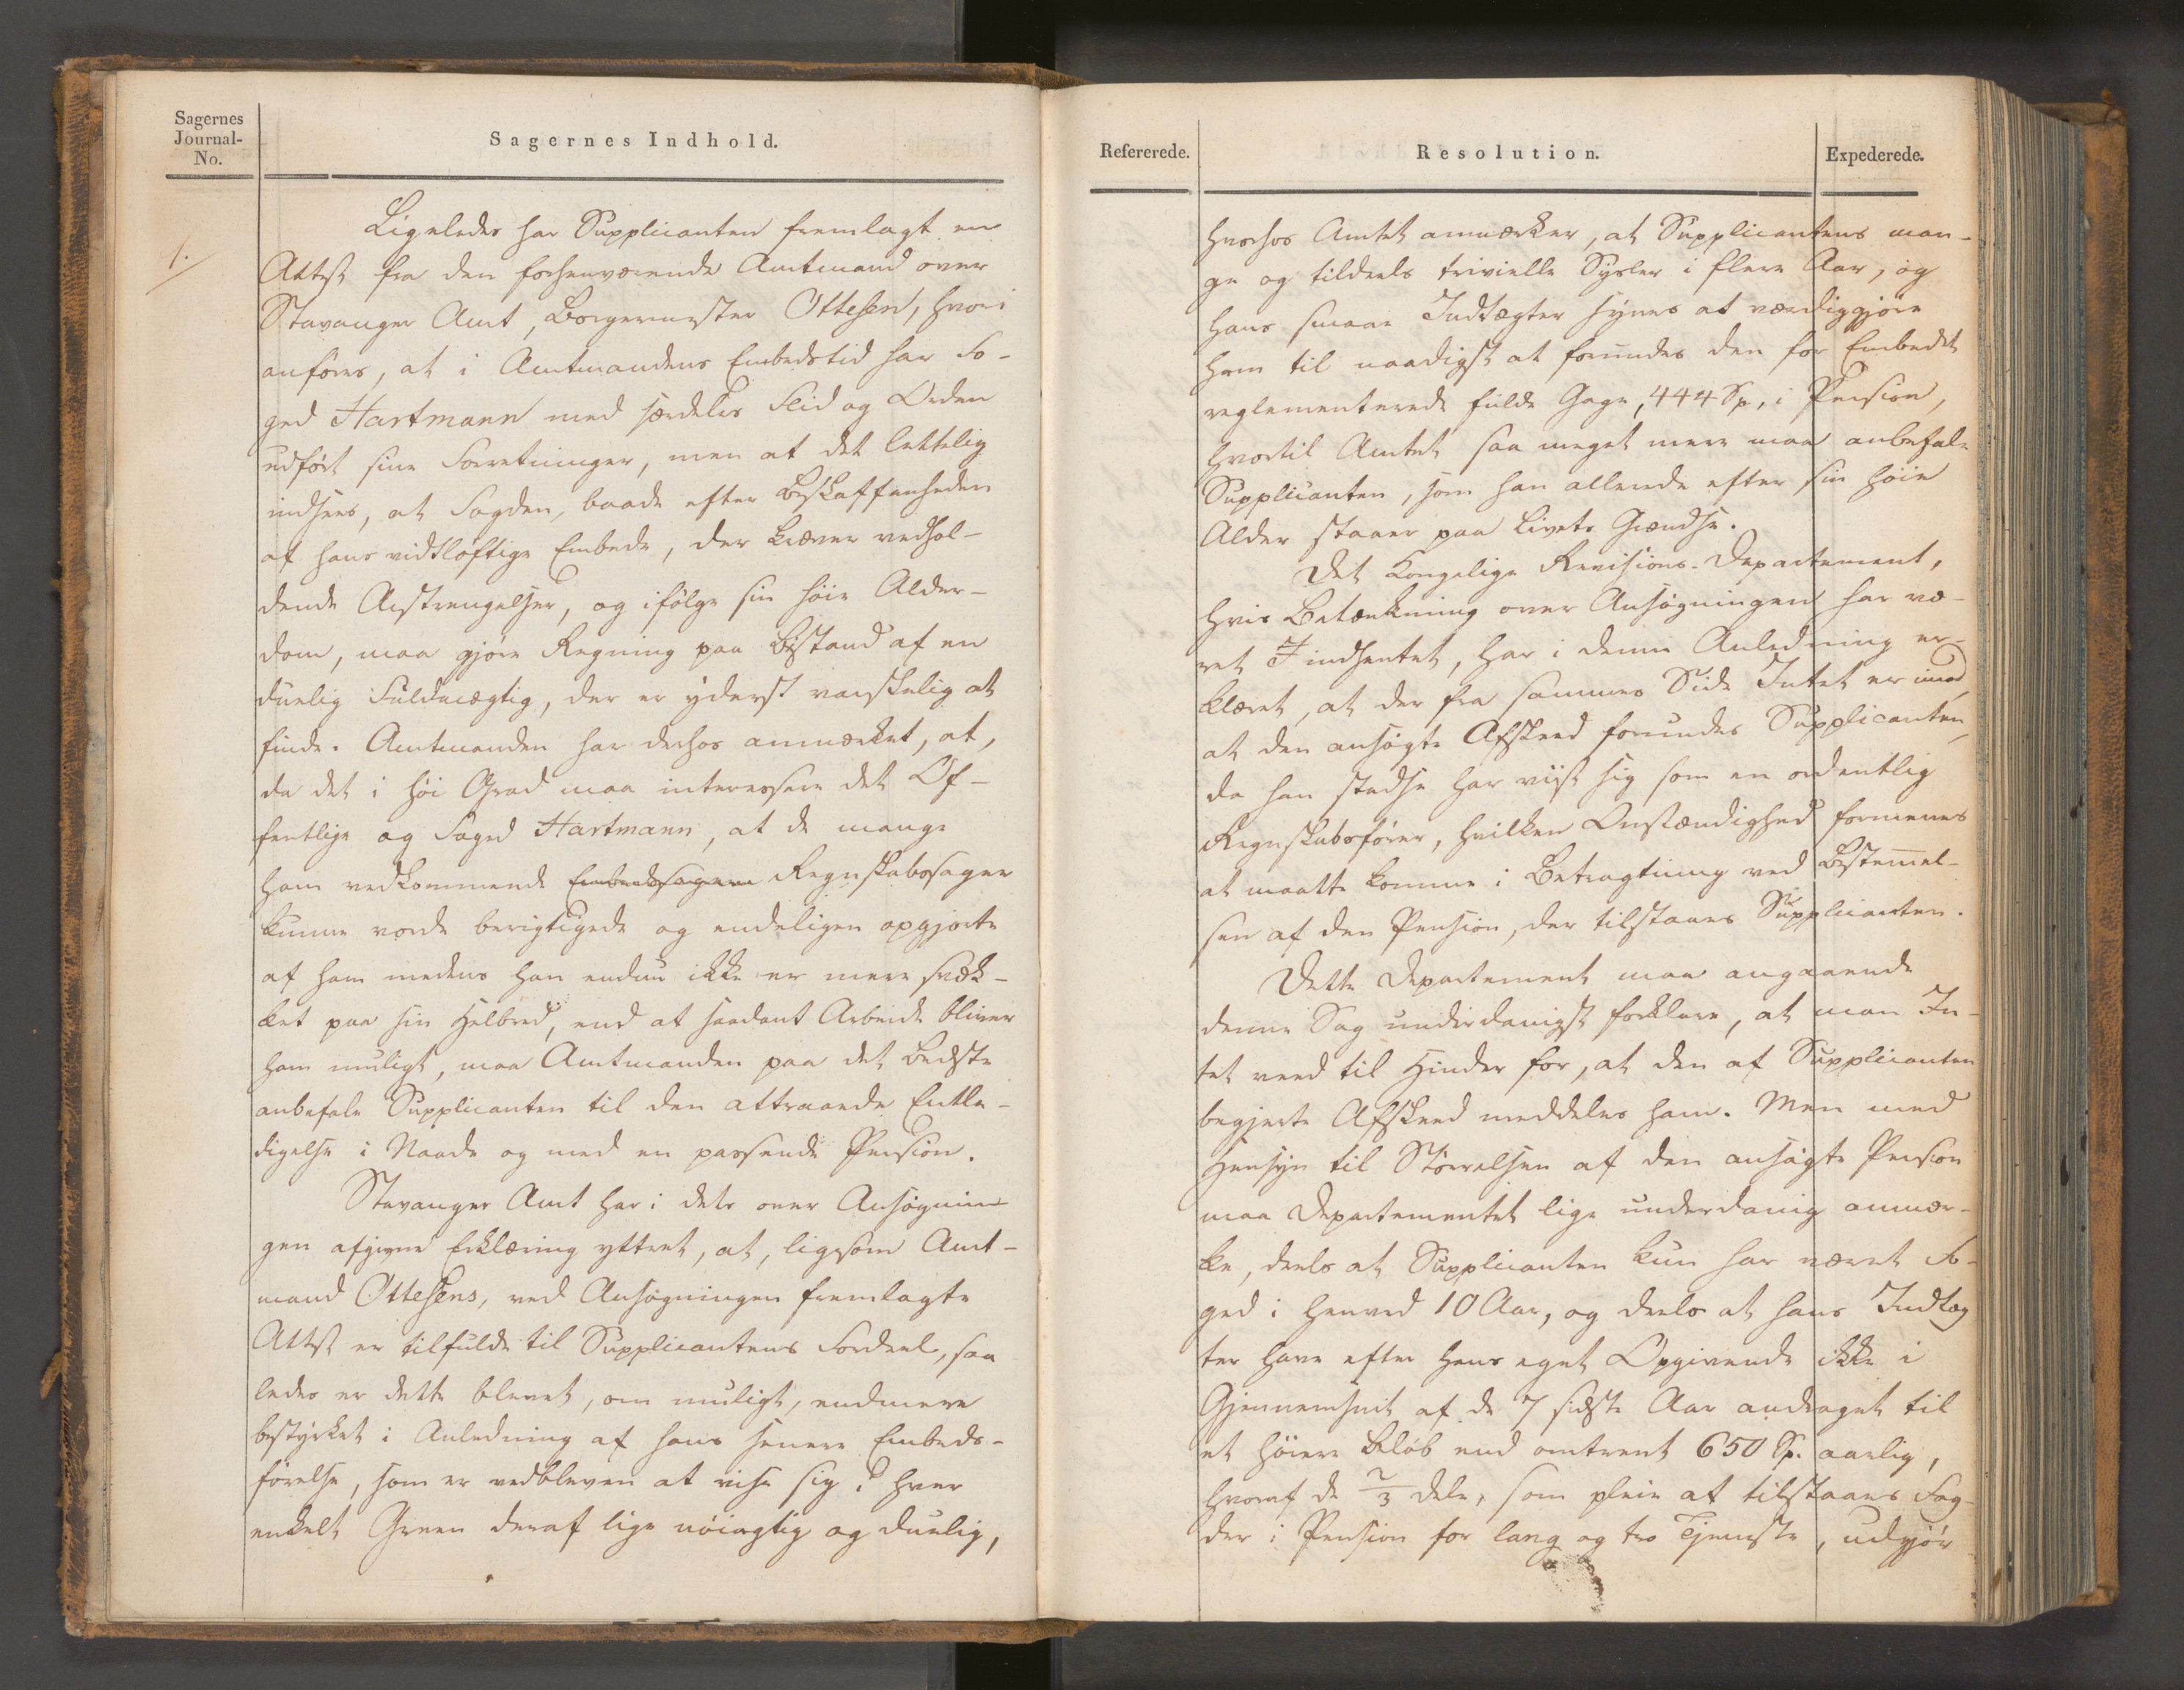 Sagernes
Journal-
No.
Sagernes Indhold.
1.
Ligeledes har Supplicanten fremlagt en
Attest fra den forhenværende Amtmand over
Stavanger Amt, Borgermester Ottesen, hvori
anføres, at i Amtmandens Embedstid har Fo-
ged Hartmann med særdeles Flid og Orden
udført sine Forretninger, men at det lettelig
indsees, at Fogden, baade efter Beskaffenheden
af hans vidtløftige Embede, der kræver vedhol-
dende Anstrengelser, og ifølge sin høie Alder-
dom, maa gjøre Regning paa Bistand af en
duelig Fuldmægtig, der er yderst vanskelig at
finde. Amtmanden har derhos anmærket, at,
da det i høi Grad maa interessere det Of-
fentlige og Foged Hartmann, at de mange
ham vedkommende Embedssagern Regnskabssager
kunne vorde berigtigede og endeligen opgjorte
af ham medens han endnu ikke er mere svæk-
ket paa sin Helbred, end at saadant Arbeide bliver
ham muligt, maa Amtmanden paa det Bedste
anbefale Supplicanten til den attraaede Entle-
digelse i Naade og med en passende Pension.
Stavanger Amt har i dets over Ansøgnin-
gen afgivne Erklæring yttret, at, ligesom Amt-
mand Ottesens, ved Ansøgningen fremlagte
Attest er tilfulde til Supplicantens Fordeel, saa
ledes er dette blevet, om muligt, endmere
bestyrket i Anledning af hans senere Embeds-
førelse, som er vedbleven at vise sig i hver
enkelt Green deraf lige nøiagtig og duelig,
Refererede.
Resolution.
Expederede.
hvorhos Amtet anmærker, at Supplicantens man-
ge og tildeels trivielle Sysler i flere Aar, og
hans smaae Indtægter synes at værdiggjøre
ham til naadigst at forundes den for Embedet
reglementerede fulde Gage, 444 Sp, i Pension,
hvortil Amtet saa meget mere maa anbefale
Supplicanten, som han allerede efter sin høie
Alder staaer paa Livets Grændse.
Det Kongelige Revisions-Departement,
hvis Betænkning over Ansøgningen har væ-
ret indhentet, har i denne Anledning er-
klæret, at der fra sammes Side Intet er imod,
at den ansøgte Afskeed forundes Supplicanten,
da han stedse har viist sig som en ordentlig
Regnskabsfører, hvilken Omstændighed formenes
at maatte komme i Betragtning ved Bestemmel-
sen af den Pension, der tilstaaes Supplicanten.
Dette Departement maa angaaende
denne Sag underdanigst forklare, at man In-
tet veed til Hinder for, at den af Supplicanten
begjerte Afskeed meddeles ham. Men med
Hensyn til Størrelsen af den ansøgte Pension
maa Departementet lige underdanig anmær-
ke, deels at Supplicanten kun har været Fo-
ged i henved 10 Aar, og deels at hans Indtæg
ter have efter hans eget Opgivende ikke i
Gjennemsnit af de 7 sidste Aar andraget til
et høiere Beløb end omtrent 650 Sp. aarlig,
hvoraf de 2/3 dele, som pleie at tilstaaes Fog-
der i Pension for lang og tro Tjeneste, udgjør